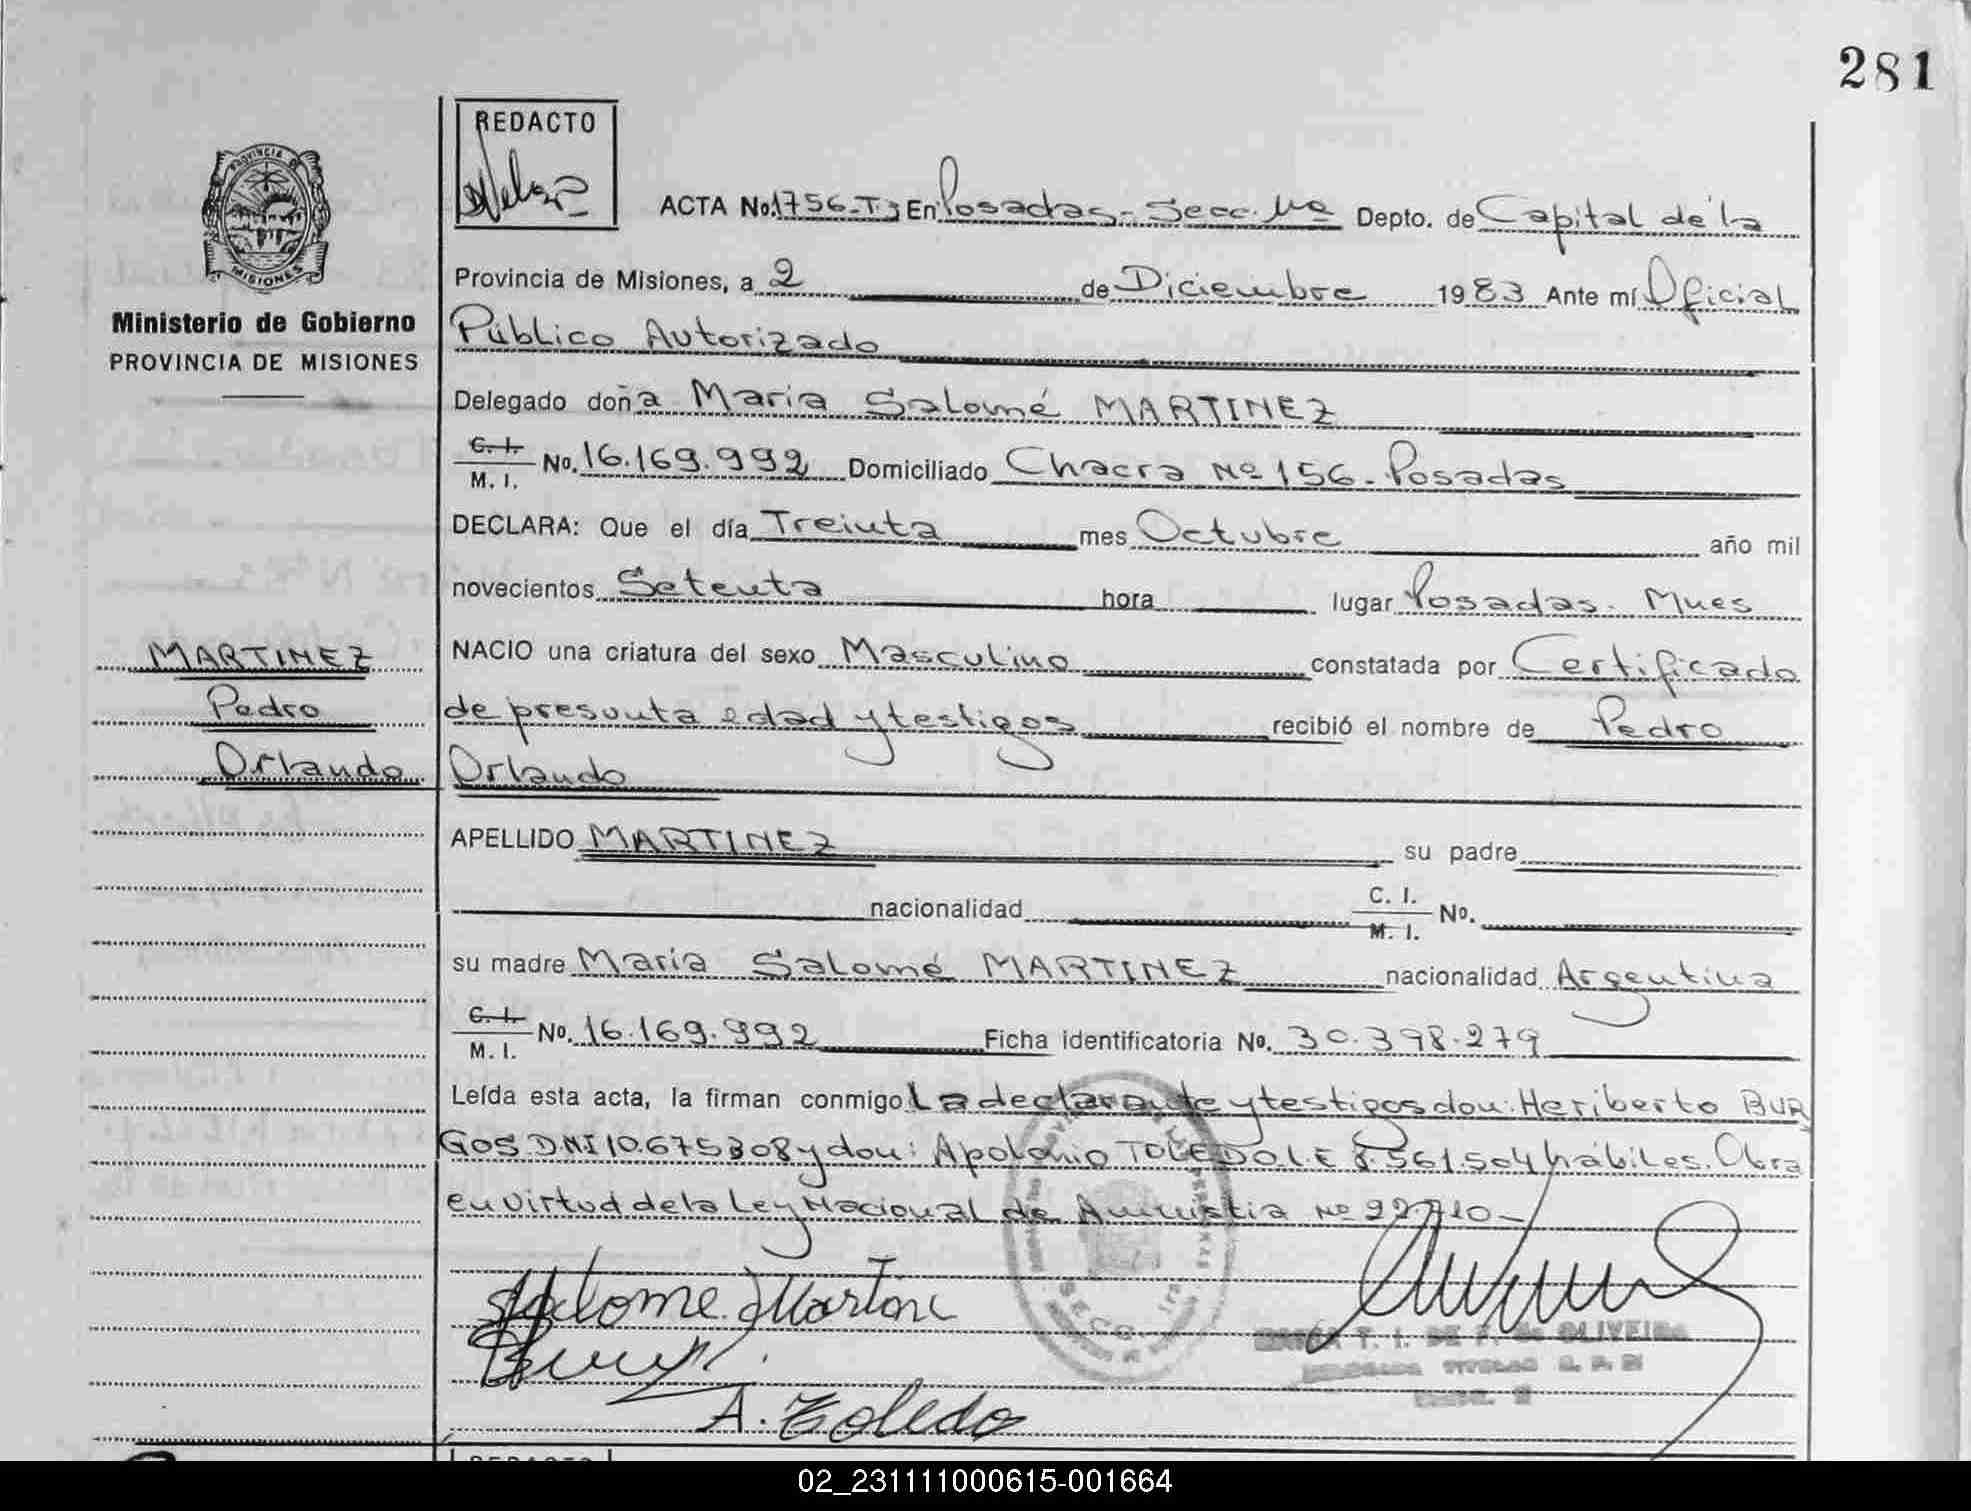 281
REDACTO
ACTA No. 1756-T3 En Posadas - Secc. 1ra Depto. de Capital de la
PROVINCIA DE
MISIONES
Provincia de Misiones, a 2 de Diciembre 1983 Ante mí Oficial
Ministerio de Gobierno
PROVINCIA DE MISIONES
Público Autorizado
Delegado doña Maria Salomé MARTINEZ
C. I.
M. I. No. 16.169.992 Domiciliado Chacra Nº 156 - Posadas
DECLARA: Que el día Treinta mes Octubre año mil
novecientos Setenta hora lugar Posadas. Mnes
NACIO una criatura del sexo Masculino constatada por Certificado
MARTINEZ
Pedro
Orlando
de presunta edad y testigos recibió el nombre de Pedro
Orlando
APELLIDO MARTINEZ su padre
nacionalidad C. I.
M. I. No.
su madre Maria Salomé MARTINEZ nacionalidad Argentina
C. I.
M. I. No. 16.169.992 Ficha identificatoria No. 30.398.279
Leída esta acta, la firman conmigo La declarante y testigos don: Heriberto BUR
GOS DNI 10.675308 y don: Apolonio TOLEDO L E 8.561.504 hábiles. Obra
en virtud de la Ley Nacional de Amnistia Nº 22710-
Salome Martine
A. Toledo
T. I. DE F. de OLIVEIRA
02_231111000615-001664